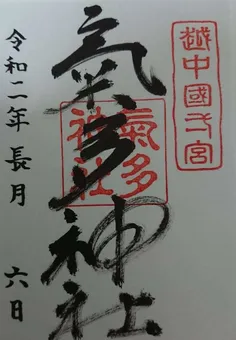 越中國弌宮
氣多神社
氣多
神社
令和二年長月 六日